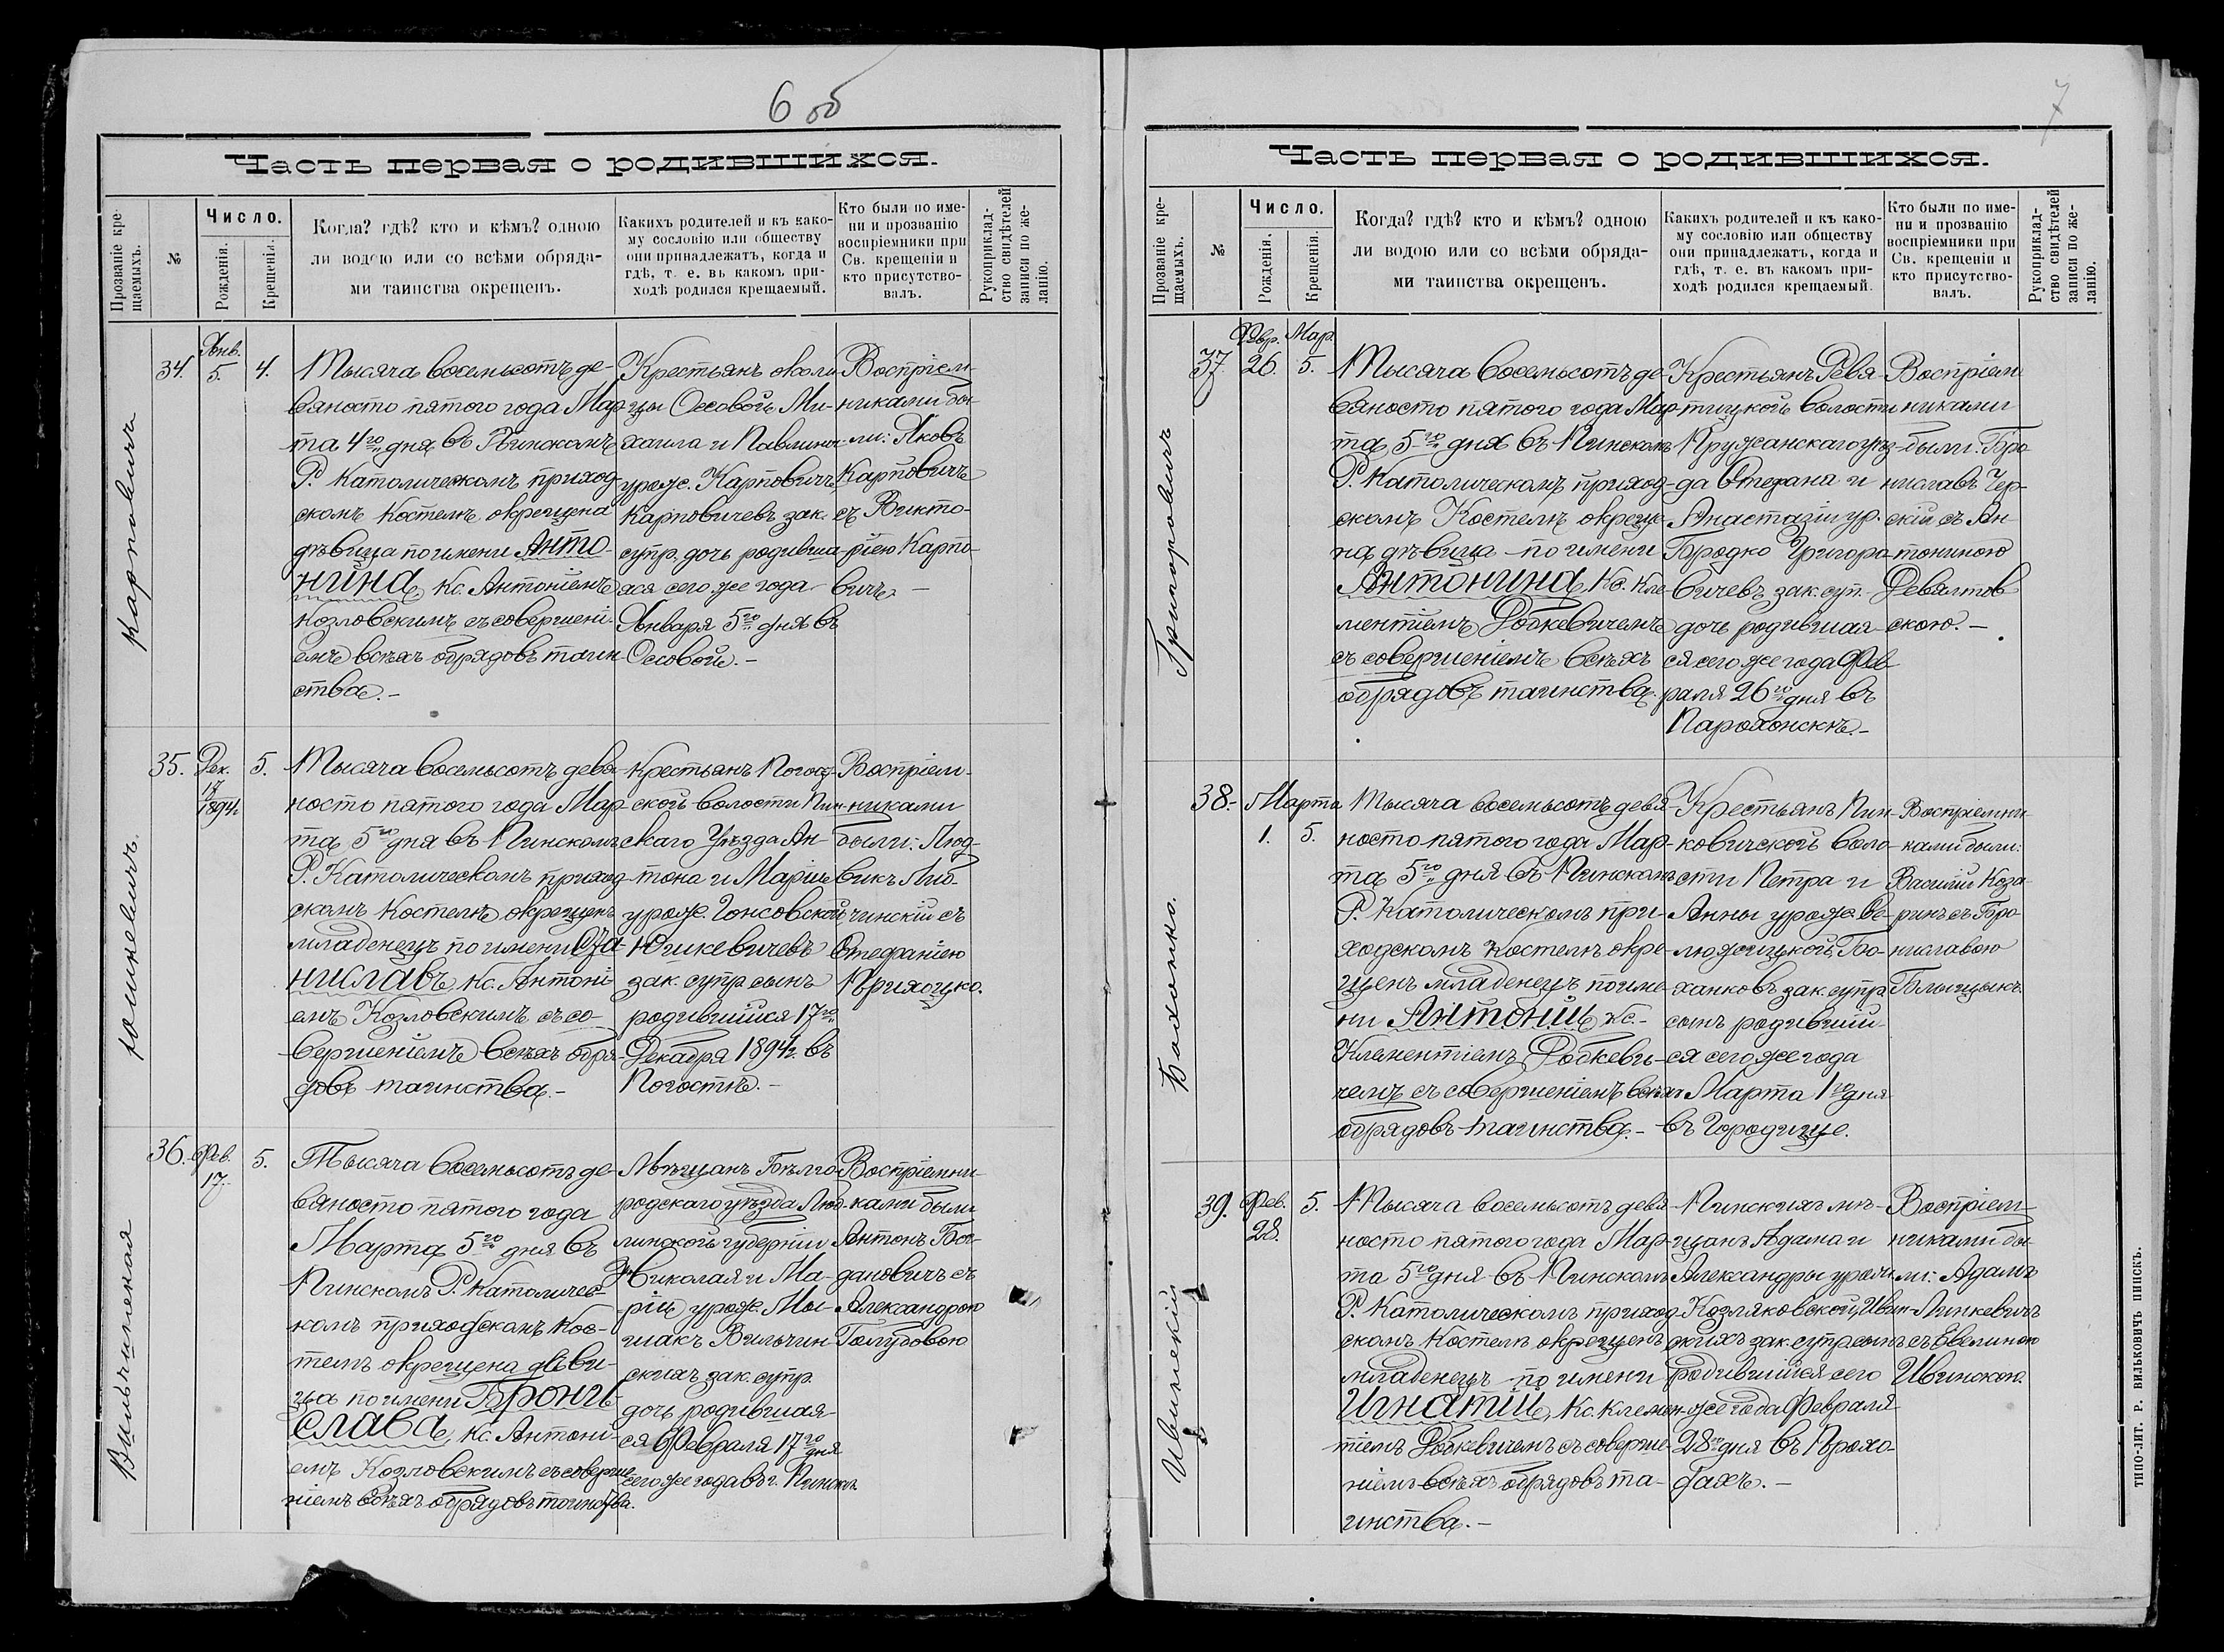 6 об
Часть первая о родившихся.
Прозваніе кре-
щаемыхъ.
№
Число.
Рожденія.
Крещенія.
Когда? гдѣ? кто и кѣмъ? одною
ли водою или со всѣми обряда-
ми таинства окрещенъ.
Какихъ родителей и къ како-
му сословію или обществу
они принадлежатъ, когда и
гдѣ, т. е. въ какомъ при-
ходѣ родился крещаемый.
Кто были по име-
ни и прозванію
воспріемники при
Св. крещеніи и
кто присутство-
валъ.
Рукоприклад-
ство свидѣтелей
записи по же-
ланію.
Карповичъ
34.
Янв.
5.
4.
Тысяча восемьсотъ де-
вяносто пятого года Мар-
та 4го дня въ Пинскомъ
Р. Католическомъ приход-
скомъ Костелѣ окрещена
дѣвица по имени Анто-
нина, Кс. Антоніемъ
Козловскимъ съ совершені-
емъ всѣхъ обрядовъ таин-
ства.-
Крестьянъ околи-
цы Оссовой Ми-
хаила и Павлины
урож. Карповичъ
Карповичевъ зак.
супр. дочь родивша-
яся сего же года
Января 5го дня въ
Оссовой.-
Воспріем-
никами бы-
ли: Яковъ
Карповичъ
съ Викто-
ріею Карпо-
вичъ. -
Юшкевичъ.
35.
Дек.
17
1894
5.
Тысяча восемьсотъ девя-
носто пятого года Мар-
та 5го дня въ Пинскомъ
Р. Католическомъ приход-
скомъ Костелѣ окрещенъ
младенецъ по имени Ста-
ниславъ, Кс. Антоні-
емъ Козловскимъ съ со-
вершеніемъ всѣхъ обря-
довъ таинства.-
Крестьянъ Погост-
ской волости Пин-
скаго Уѣзда Ан-
тона и Маріи
урож. Гонсовской
Юшкевичевъ
зак. супр. сынъ
родившійся 17го
Декабря 1894 г. въ
Погостѣ.-
Воспріем-
никами
были: Люд-
викъ
съ
Стефаніею
Прихоцко.
Вильчинская
36.
Фев.
17.
5.
Тысяча восемьсотъ де-
вяносто пятого года
Марта 5го дня въ
Пинскомъ Р. Католичес-
комъ приходскомъ Кос-
телѣ окрещена дѣви-
ца по имени Брони-
слава, Кс. Антоні-
емъ Козловскимъ съ соверше-
ніемъ всѣхъ обрядовъ таинства.
Мѣщанъ Бѣлго-
родскаго уѣзда Люб-
линской губерніи
Николая и Ма-
ріи урож. Мы-
шакъ Вильчин-
скихъ зак. супр.
дочь родившая-
ся Февраля 17го дня
сего же года въ г. Пинскѣ.
Воспріемни-
ками были
Антонъ Бог-
дановичъ съ
Александрою
Голубовою
7
Часть первая о родившихся.
Прозваніе кре-
щаемыхъ.
№
Число.
Рожденія.
Крещенія.
Когда? гдѣ? кто и кѣмъ? одною
ли водою или со всѣми обряда-
ми таинства окрещенъ.
Какихъ родителей и къ како-
му сословію или обществу
они принадлежатъ, когда и
гдѣ, т. е. въ какомъ при-
ходѣ родился крещаемый.
Кто были по име-
ни и прозванію
воспріемники при
Св. крещеніи и
кто присутство-
валъ.
Рукоприклад-
ство свидѣтелей
записи по же-
ланію.
Григоровичъ
37.
Февр.
26.
Мар.
5.
Тысяча восемьсотъ де-
вяносто пятого года Мар-
та 5го дня въ Пинскомъ
Р. Католическомъ приход-
скомъ Костелѣ окреще-
на дѣвица по имени
Антонина, Кс. Кле-
ментіемъ Робкевичемъ
съ совершеніемъ всѣхъ
обрядовъ таинства.
Крестьянъ Ревя-
тицкой волости
Пружанскаго уѣз-
да Стефана и
Анастазіи ур.
Бородко Григоро-
вичевъ зак. суп.
дочь родившая-
ся сего же года Фев-
раля 26го дня въ
Парохонскѣ.-
Воспріем-
никами
были: Бро-
ниславъ Чер-
скій съ Ан-
тониною
Девялтов-
скою.-
Боханко.
38.-
Марта
1.
5.
Тысяча восемьсотъ девя-
носто пятого года Мар-
та 5го дня въ Пинскомъ
Р. Католическомъ при-
ходскомъ Костелѣ окре-
щенъ младенецъ по име-
ни Антоній, Кс.
Клементіемъ Робкеви-
чемъ съ совершеніемъ всѣхъ
обрядовъ таинства.-
Крестьянъ Пин-
ковичской воло-
сти Петра и
Анны урож. Ве-
люжицкой, Бо-
ханковъ зак. супр.
сынъ родивший-
ся сего же года
Марта 1го дня
въ Городище.
Воспріемни-
ками были:
Василій Коза-
ринъ съ Бро-
ниславою
Ивинскій
39.
Фев.
28.
5.
Тысяча восемьсотъ девя-
носто пятого года Мар-
та 5го дня въ Пинскомъ
Р. Католическомъ приход-
скомъ Костелѣ окрещенъ
младенецъ по имени
Игнатій, Кс. Клемен-
тіемъ Робкевичемъ съ соверше-
ніемъ всѣхъ обрядовъ та-
инства.-
Пинскихъ мѣ-
щанъ Адама и
Александры урож.
Козляковской, Ивин-
скихъ зак. супр. сынъ
родившійся сего
же года Февраля
28го дня въ Прохо-
дахъ.-
Воспріем-
никами бы-
ли: Адамъ
Линкевичъ
съ Евелиною
Ивинскою.
ТИПО-ЛИТ. Р. ВИЛЬКОВИЧЪ ПИНСКЪ.